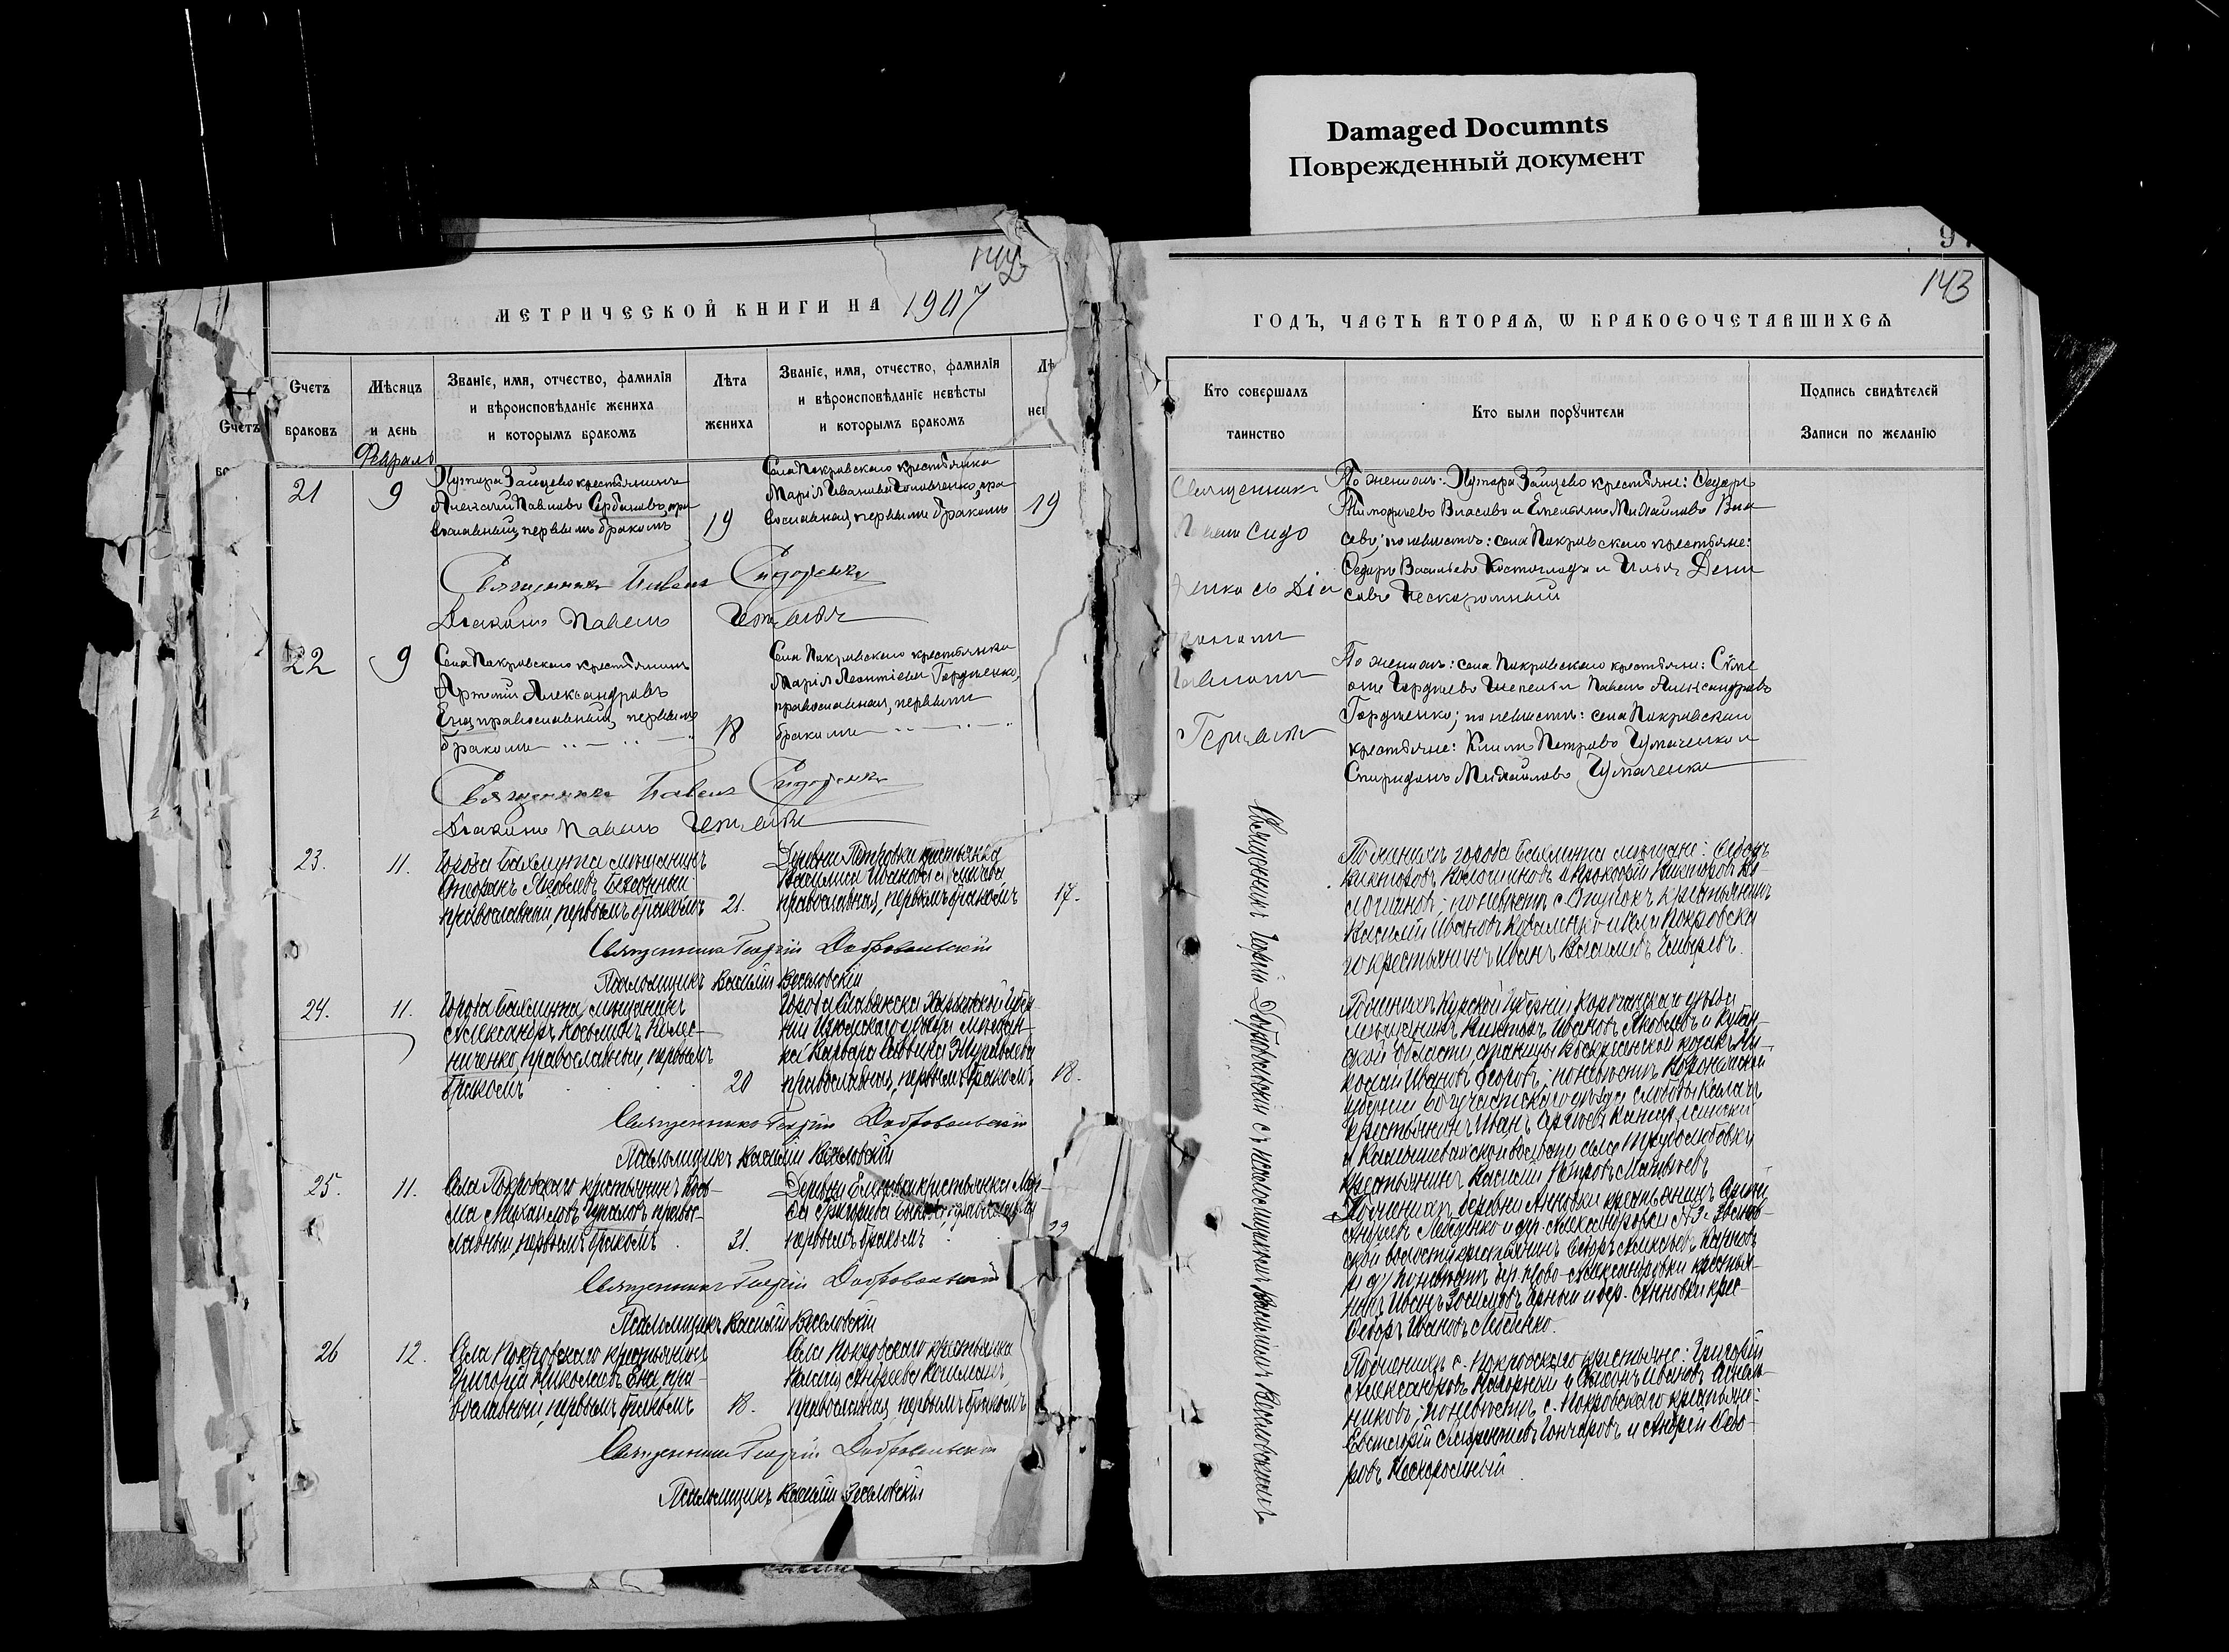 Damaged Documnts
Поврежденный документ
142
МЕТРИЧЕСКОЙ КНИГИ НА 1907
Счетъ
браковъ
Мѣсяцъ
и день
Званіе, имя, отчество, фамилія
и вѣроисповѣданіе жениха
и которымъ бракомъ
Лѣта
жениха
Званіе, имя, отчество, фамилія
и вѣроисповѣданіе невѣсты
и которымъ бракомъ
Лѣ
нев
Счетъ
Февраль
21
9
Хутора Зайцево крестьянинъ
Алексѣй Павловъ Сербиновъ, пра
вославный, первымъ бракомъ
19
Села Покровскаго крестьянка
Марія Иванова Головченко, пра
вославная, первымъ бракомъ
19
Священникъ Павелъ Сидоренко
Діаконъ Павелъ
22
9
Села Покровскаго крестьянинъ
Артемій Александровъ
Ена, православный, первымъ
бракомъ
18
Села Покровскаго крестьянка
Марія Леонтіева Гордіенко,
православная, первымъ
бракомъ
Священникъ Павелъ Сидоренко
Діаконъ Павелъ
23.
11.
Города Бахмута мѣщанинъ
Стефанъ Яковлевъ
православный, первымъ бракомъ
21.
Деревни Петровки крестьянка
Василиса Иванова
православная, первымъ бракомъ
17.
Священникъ Георгій Добровольскій
Псаломщикъ Василій Веселовскій
24.
11.
Города Бахмута мѣщанинъ
Александръ Косьминъ Колес-
ниченко, православный, первымъ
бракомъ
20
Города Славянска Харьковской губер-
ніи Изюмскаго уѣзда мѣщан-
ка Варвара Саввина Журавлева
православная, первымъ бракомъ
18.
Священникъ Георгій Добровольскій
Псаломщикъ Василій Веселовскій
25.
11.
Села Покровскаго крестьянинъ Кось-
ма Михаиловъ православ-
лавный, первымъ бракомъ
31.
Деревни крестьянка
Григорьева православная
первымъ бракомъ
22
Священникъ Георгій Добровольскій
Псаломщикъ Василій Веселовскій
26
12.
Села Покровскаго крестьянинъ
Григорій Николаевъ Ена, пра-
вославный, первымъ бракомъ
18.
Села Покровскаго крестьянка
Андреева
православная, первымъ бракомъ
Священникъ Георгій Добровольскій
Псаломщикъ Василій Веселовскій
143
ГОДЪ, ЧАСТЬ ВТОРАѦ, Ѡ БРАКОСОЧЕТАВШИХСѦ
Кто совершалъ
таинство
Кто были порȣчители
Подпись свидѣтелей
Записи по желанію
Священникъ
Павелъ Сидо
ренко съ Діа
кономъ
Павломъ
По женихѣ: Хутора Зайцево крестьяне: Ѳедоръ
Тимоѳеевъ Власовъ и Емельянъ Михайловъ Вла
совъ; по невѣстѣ: села Покровскаго крестьяне:
Ѳедоръ Васильевъ и Илья Дени
совъ Нескоромный
По женихѣ: села Покровскаго крестьяне: Стеѳ
анъ Гордіевъ Шепель и Павелъ Александровъ
Гордіенко; по невѣстѣ: села Покровскаго
крестьяне: Климъ Петровъ Чумаченко и
Спиридонъ Михайловъ Чумаченко
Священникъ Георгій Добровольскій съ псаломщикомъ Василіемъ Веселовскимъ
По женихѣ города Бахмута мѣщане: Ѳедоръ
Викторовъ и Прокофій Викторовъ
по невѣстѣ с. крестьянинъ
Василій Ивановъ Коваленко и села Покровска
го крестьянинъ Иванъ Василіевъ
По женихѣ Курской губерніи Корочанскаго уѣзда
мѣщанинъ Викторъ Ивановъ Яковлевъ и Кубан-
ской области, станицы козакъ Ни-
колай Ивановъ по невѣстѣ Воронежской
губерніи Богучарскаго уѣзда слободы Калача
крестьянинъ Иванъ
и волости села Трудолюбовки
крестьянинъ Василій Петровъ Матвѣевъ
По женихѣ деревни Анновки крестьянинъ
Андреевъ Лебединко и дер. Александровки № 3
волости крестьянинъ Ѳедоръ
по невѣстѣ дер. Ново-Александровки крестья-
нинъ Иванъ и дер. Анновки крес-
Ѳедоръ Ивановъ
По женихѣ с. Покровскаго крестьяне: Григорій
Александровъ Нагорный и Симеонъ Ивановъ
по невѣстѣ с. Покровскаго крестьяне:
Евстафій Гончаровъ и Андрей Ѳедо-
ровъ Нескоромный